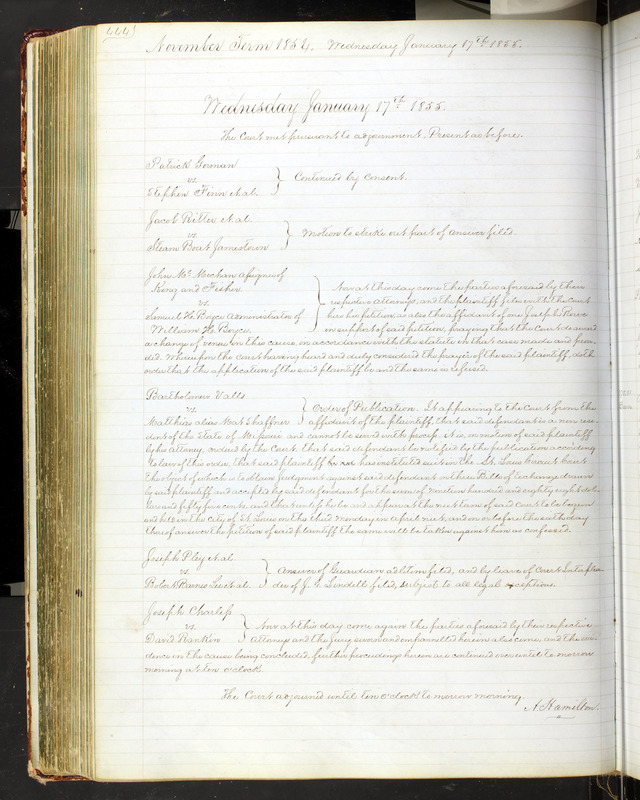 444
November Term 1854. Wednesday January 17th 1855.
Wednesday January 17th 1855.
The Court met pursuant to adjournment. Present as before.
Patrick Gorman
vs.
Stephen Finn et al.
} Continued by Consent.
Jacob Ritter et al
vs.
Steam Boat Jamestown
} Motion to strike out part of answer filed
John McMechan assignee of
King and Fisher
vs.
Samuel H. Boyce Administrator of
William H. Boyce.
} Now at this day come the parties aforesaid by their
respective attorneys, and the plaintiff files with the Court
here his petition, as also the affidavit of one Joseph
in support of said petition, praying that the Court do award
a change of venue in this cause, in accordance with the statute in that case made and provi-
ded. Whereupon the Court having heard and duly considered the prayer of the said plaintiff, doth
order that the application of the said plaintiff be and the same is refused.
Bartholomew Valls
vs.
Matthias alias Mat Shaffner
} Order of Publication. It appearing to the Court from the
affidavit of the plaintiff that said defendant is a non resi-
dent of the State of Missouri and cannot be served with process. It is, on motion of said plaintiff
by his attorney, ordered by the Court, that said defendant be notified by the publication according
to law of this order, that said plaintiff has instituted suit in the St. Louis Circuit Court
the object of which is to obtain judgment against said defendant on three Bills of Exchange drawn
by said plaintiff and accepted by said defendant for the sum of nineteen hundred and eighty eight dol-
lars and fifty five cents. and that unless he be and appear at the next term of said Court to be begun
and held in the City of St Louis on the third Monday in April next, and on or before the sixth day
thereof answer the petition of said plaintiff the same will be taken against him as confessed.
Joseph Pley et al
vs.
Robert Barnes Lee et al
} Answer of Guardian ad litem filed, and by leave of Court Interplea-
der of J. G. Lindell filed, subject to all legal exceptions.
Joseph Charless
vs.
David Rankin
} Now at this day come again the parties aforesaid by their respective
attorneys and the jury sworn and empannelled herein also come, and the evi-
dence in the cause being concluded, further proceedings herein are continued over until to morrow
morning at ten o'clock.
The Court adjourned until ten o'clock to morrow morning
A. Hamilton.